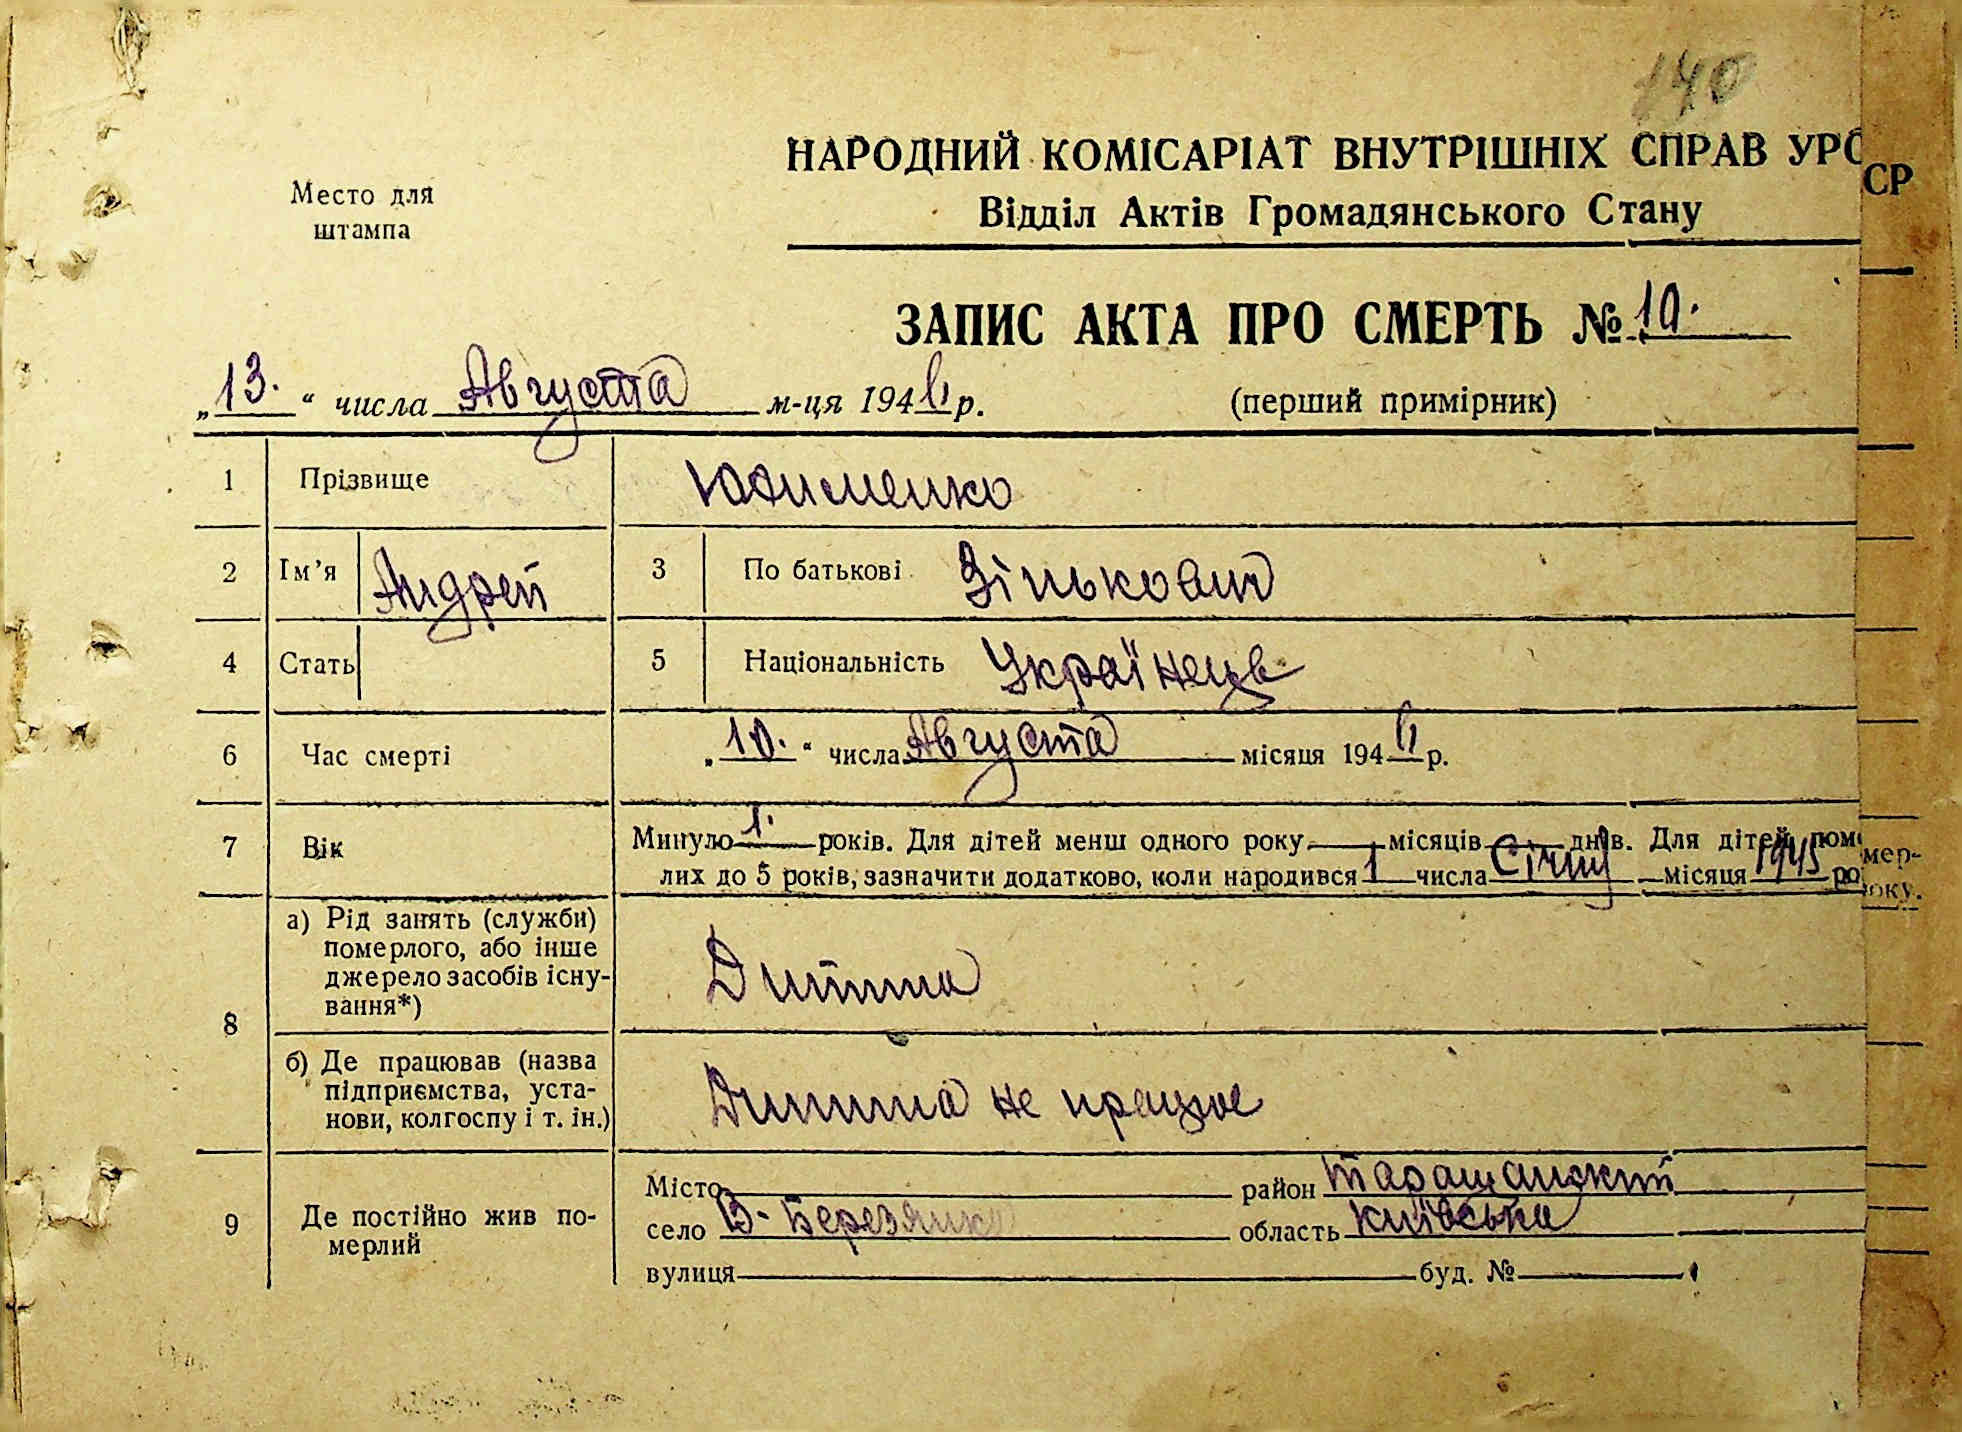 140
НАРОДНИЙ КОМІСАРІАТ ВНУТРІШНІХ СПРАВ УРС
СР
Відділ Актів Громадянського Стану
Место для
штампа
ЗАПИС АКТА ПРО СМЕРТЬ № 10.
„13.“ числа Августа м-ця 194 р.
(перший примірник)
1 Прізвище
2 Ім’я Андрей 3 По батькові Зінькович
4 Стать 5 Національність Українець
6 Час смерті „10.“ числа Августа місяця 194 р.
7 Вік Минуло 1. років. Для дітей менш одного року місяців днів. Для дітей поме
мер-
лих до 5 років, зазначити додатково, коли народився 1 числа Січня місяця 1945 ро
оку.
8 а) Рід занять (служби)
померлого, або інше
джерело засобів існу-
вання*) Дитина
б) Де працював (назва
підприємства, уста-
нови, колгоспу і т. ін.) Дитина не працює
9 Де постійно жив по-
мерлий
Місто район Таращанский
село В-Березянка область Київська
вулиця буд. №